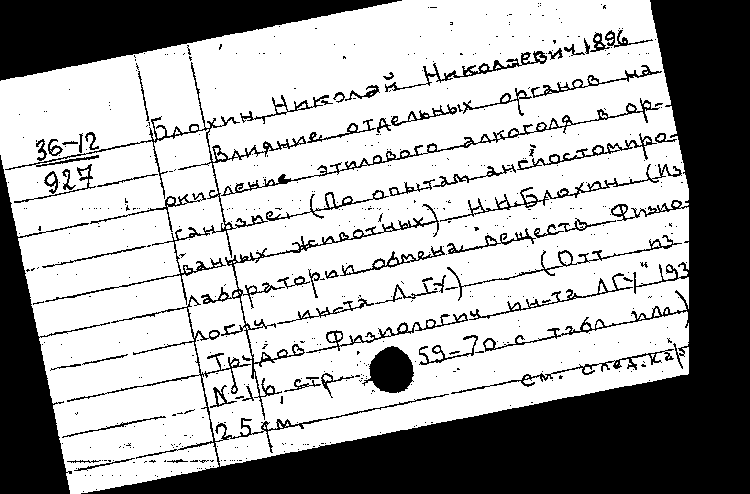 36-12
927
Блохин, Николай Николаевич, 1896
Влияние отдельных органов на
окисление этилового алкоголя в ор-
ганизме. (По опытам ангиостомиро-
ванных животных). Н.Н.Блохин. (Из
лаборатории обмена веществ Физио-
логич. ин-та Л.Г.У.) (Отт из
"Трудов Физиологич. ин-та ЛГУ" 193
№ 16, стр. 59-70 с табл. илл.)
25 см.
см. след. кар